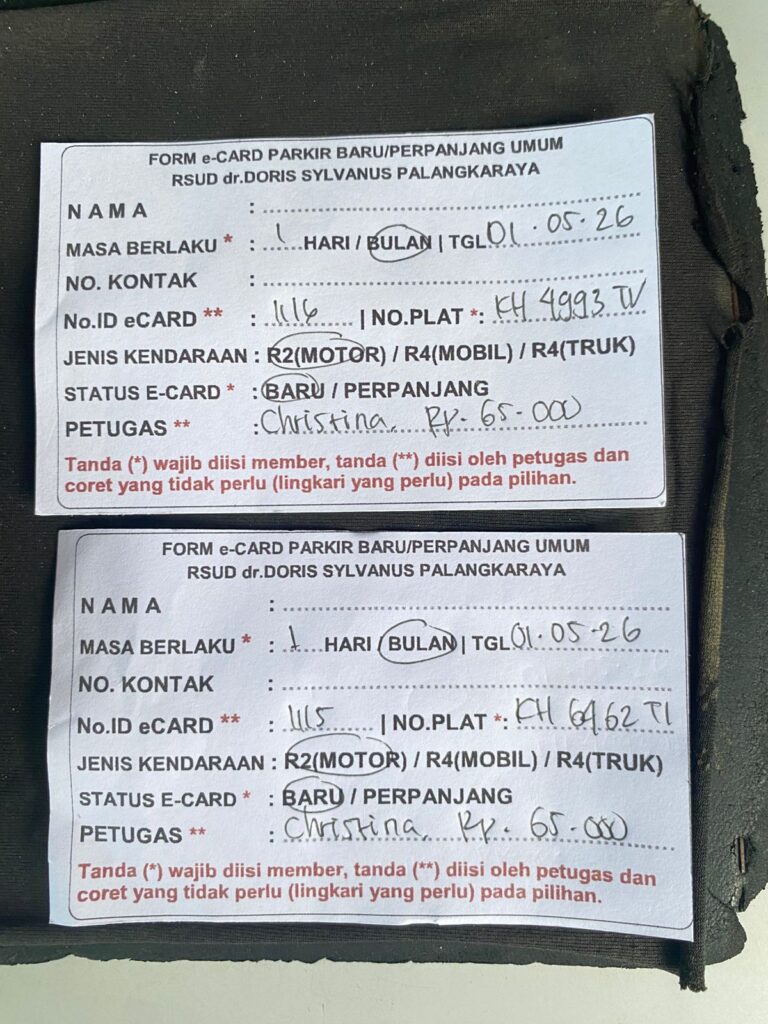 FORM e-CARD PARKIR BARU/PERPANJANG UMUM
RSUD dr.DORIS SYLVANUS PALANGKARAYA
N A M A :
MASA BERLAKU * : 1 HARI / BULAN | TGL 01.05.26
NO. KONTAK :
No.ID eCARD ** : 1116 | NO.PLAT *: KH 4993 TV
JENIS KENDARAAN : R2(MOTOR) / R4(MOBIL) / R4(TRUK)
STATUS E-CARD * : BARU / PERPANJANG
PETUGAS ** : Christina, Rp. 65.000
Tanda (*) wajib diisi member, tanda (**) diisi oleh petugas dan
coret yang tidak perlu (lingkari yang perlu) pada pilihan.
FORM e-CARD PARKIR BARU/PERPANJANG UMUM
RSUD dr.DORIS SYLVANUS PALANGKARAYA
N A M A :
MASA BERLAKU * : 1 HARI / BULAN | TGL 01.05-26
NO. KONTAK :
No.ID eCARD ** : 1115 | NO.PLAT *: KH 6962 TI
JENIS KENDARAAN : R2(MOTOR) / R4(MOBIL) / R4(TRUK)
STATUS E-CARD * : BARU / PERPANJANG
PETUGAS ** : Christina, Rp. 65.000
Tanda (*) wajib diisi member, tanda (**) diisi oleh petugas dan
coret yang tidak perlu (lingkari yang perlu) pada pilihan.